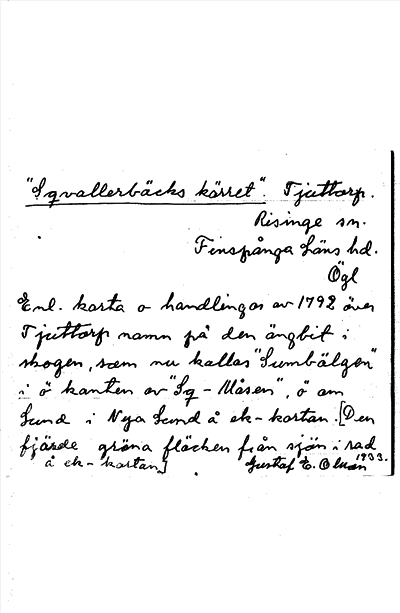 "Sqvallerbäcks kärret". Tjuttorp.
Risinge sn.
Finspånga läns hd.
Ögl
Enl. karta o handlingar av 1792 över
Tjuttorp namn på den ängbit i
skogen, som nu kallas "Sumbälgen"
i ö kanten av "Sq-Måsen", ö om
Sund i Nya Sund å ek-kartan. [Den
fjärde gröna fläcken från sjön i rad
å ek-kartan] Gustaf E. Olsson 1933.